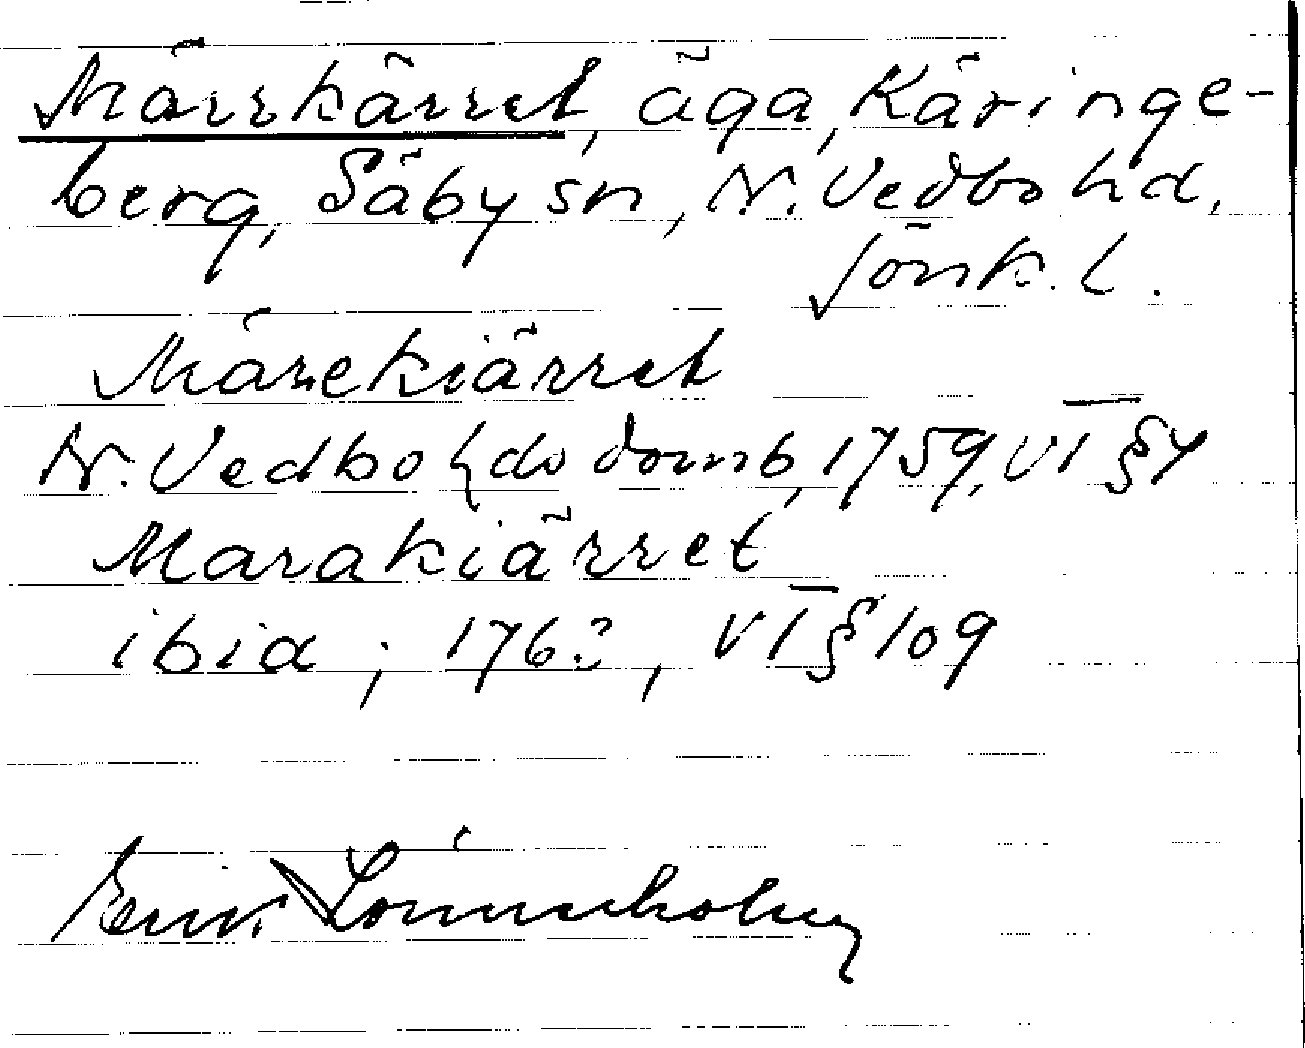 Märrkärret, äga, Käringe-
berg, Säby sn, N. Vedbo hd,
Jönk. l.
Märekiärret
N. Vedbo hds domb, 1759, VI § 4
Marakiärret
ibid; 176?, VI § 109
Erik Lönnerholm